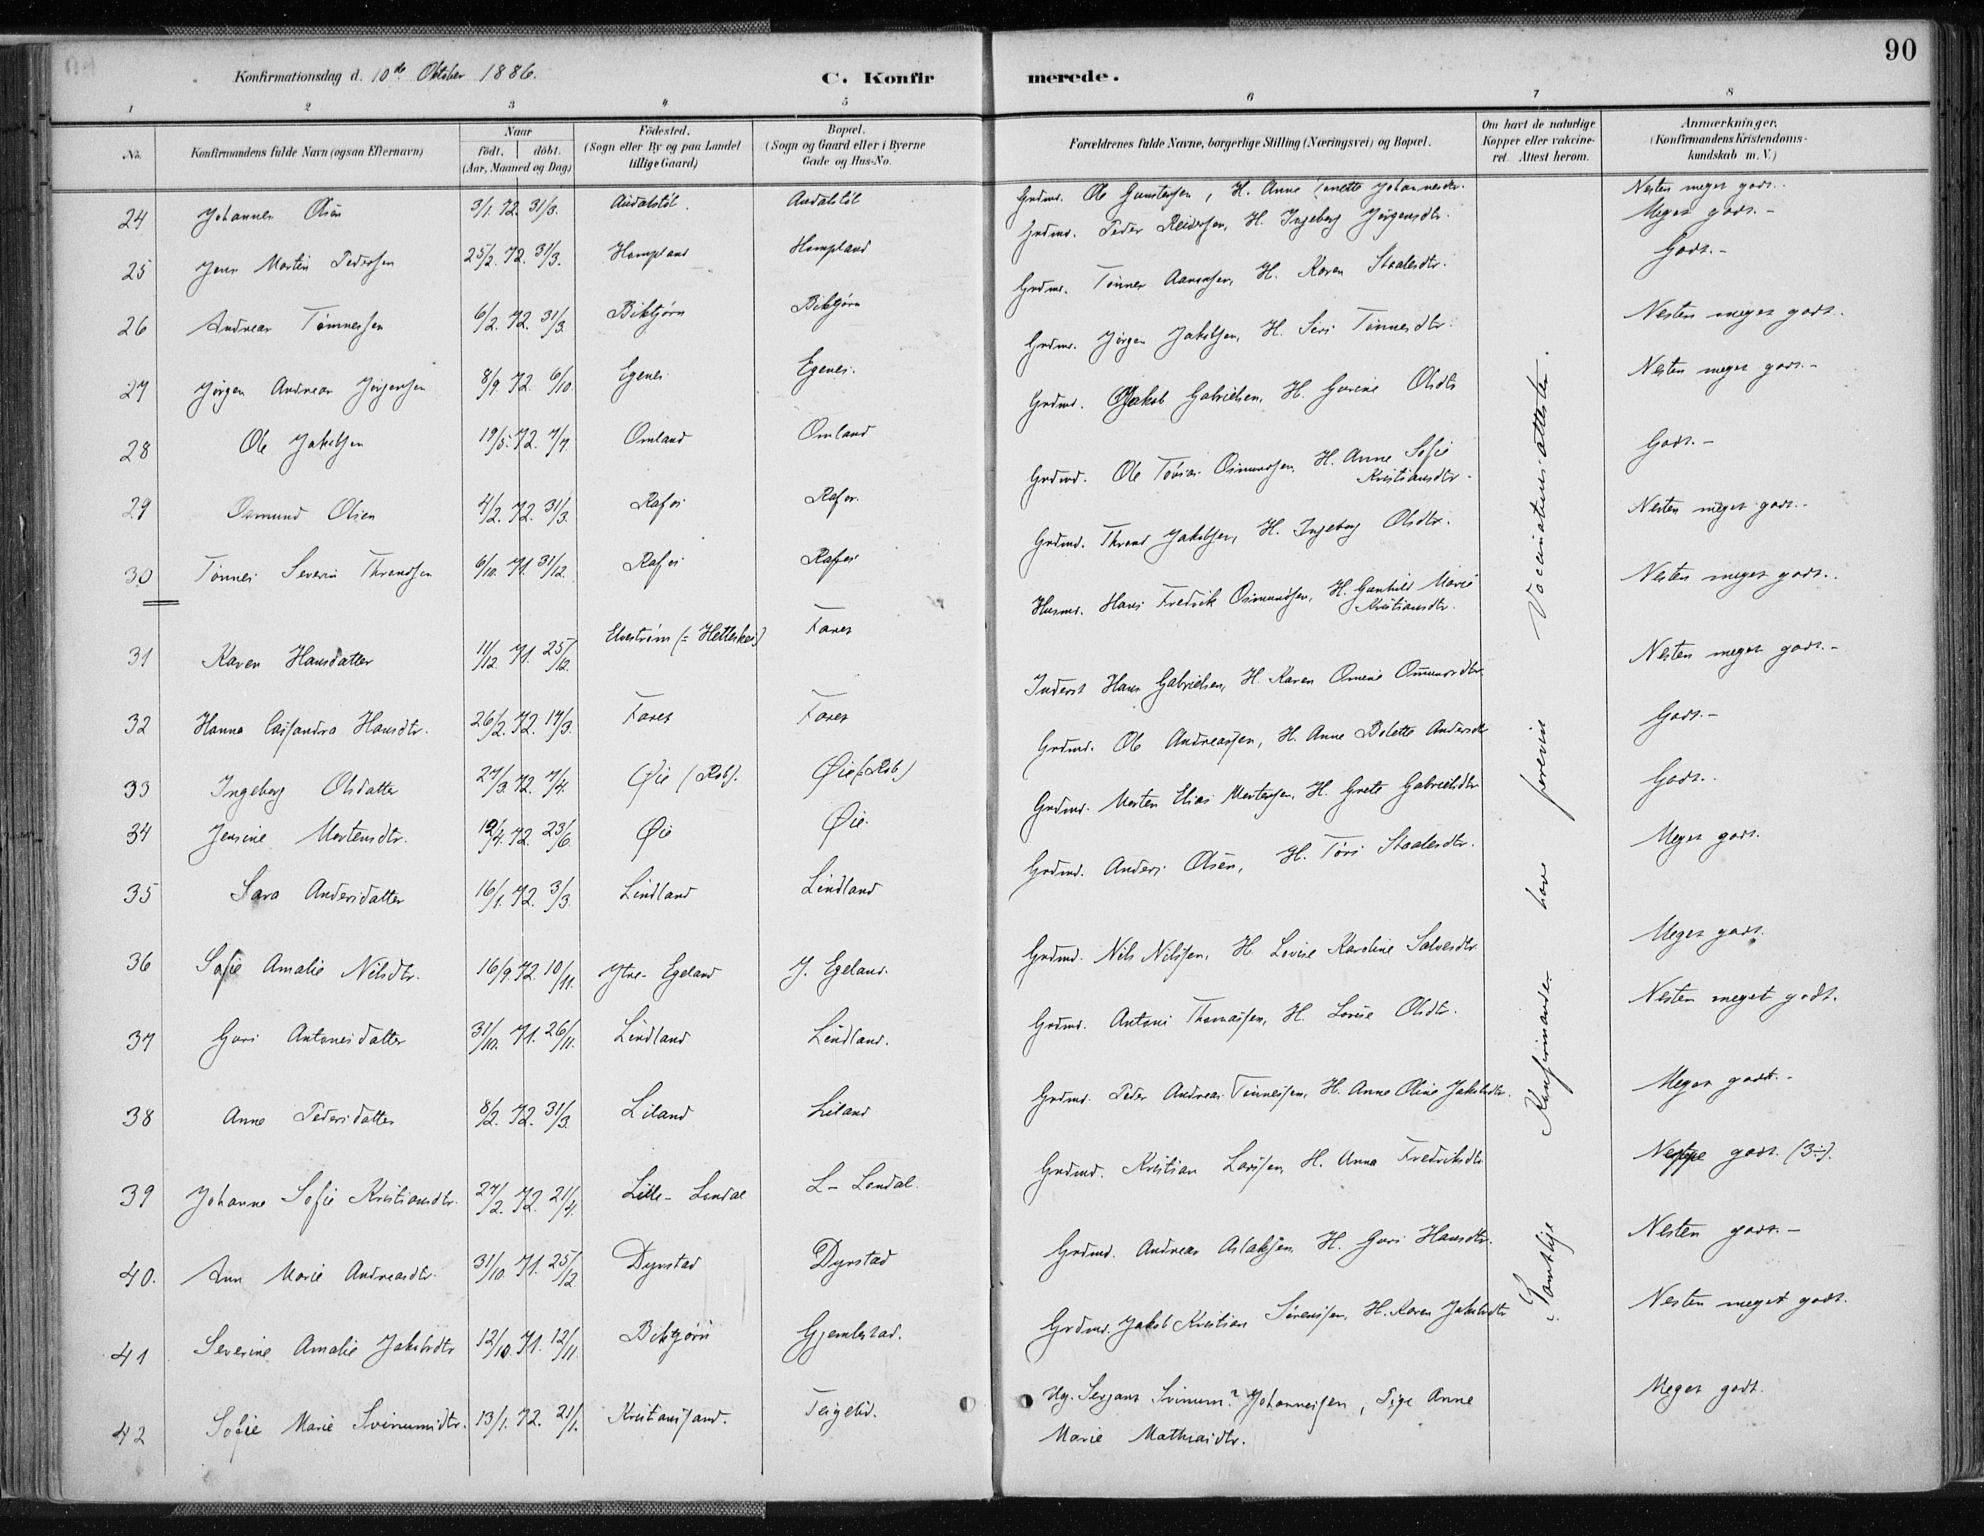 90
Konfirmationsdag d. 10de Oktober 1886.
C. Konfirmerede.
1 2 3 4 5 6 7 8
No.
Konfirmandens fulde Navn (ogsaa Efternavn)
Naar
födt. döbt.
(Aar, Maaned og Dag)
Födested.
(Sogn eller By og paa Landet
tillige Gaard)
Bopæl.
(Sogn og Gaard eller i Byerne
Gade og Hus-No.
Forældrenes fulde Navne, borgerlige Stilling (Næringsvei) og Bopæl.
Om havt de naturlige
Kopper eller vakcine-
ret. Attest herom.
Anmærkninger.
(Konfirmandens Kristendoms-
kundskab m. V.)
24 Johannes Olsen 3/1. 72. 31/3. Audalstöl. Audalstöl Grdmd. Ole Gunstensen, H. Anne Tonette Johannesdtr. Nesten meget godt.
25 Jens Martin Pedersen 25/2. 72. 31/3. Hompland Hompland Grdmd. Peder Reiersen, H. Ingeborg Jörgensdtr. Meget godt.-
26 Andreas Tönnessen 6/2. 72. 31/3. Biktjörn Biktjörn Grdmd. Tönnes Aanensen, H. Karen Staalesdtr. Godt.-
27 Jörgen Andreas Jörgensen 8/9. 72. 6/10. Egenes Egenes. Grdmd. Jörgen Jakobsen, H. Siri Tönnesdtr. Nesten meget godt.
28 Ole Jakobsen 19/5. 72. 7/7. Omland Omland Grdmd. Jakob Gabrielsen, H. Gurine Olsdtr Nesten meget godt.-
29 Osmund Olsen 4/2. 72. 31/3. Rafos Rafos. Grdmd. Ole Tobias Osmundsen, H. Anne Sofie
Kristiansdtr. Godt.-
30 Tönnes Severin Throndsen 6/10. 71. 31/12. Rafos Rafos Grdmd. Thrond Jakobsen, H. Ingeborg Olsdtr. Nesten meget godt.-
31 Karen Hansdatter 11/12. 71. 25/12. Elvestrøm (= Hetteskei) Faret Husmd. Hans Fredrik Osmundsen, H. Gunhild Marie
Kristiansdtr. Nesten meget godt..
32 Hanna Cassandra Hansdtr. 26/2. 72. 17/3. Faret Faret Inderst Hans Gabrielsen, H. Karen Omine Osmundsdtr. Nesten meget godt.-
33 Ingeborg Olsdatter 27/3. 72. 7/4. Øie (Rob). Øie (: Rob) Grdmd. Ole Andreassen, H. Anne Bolette Andersdtr Godt.-
34 Jensine Mortensdtr. 72. 23/6. Øie Øie. Grdmd. Morten Elias Mortensen, H. Grete Gabrielsdtr Godt..
35 Sara Andersdatter 16/1. 72. 3/3. Lindland Lindland Grdmd. Anders Olsen, H. Töri Staalesdtr. Meget godt.
36 Sofie Amalie Nilsdtr. 16/9. 72. 10/11. Ytre-Egeland Y. Egeland. Grdmd. Nils Nilssen, H. Lovise Karoline Salvesdtr Meget godt.
37 Guri Antonesdatter 31/10. 71. 26/11. Lindland Lindland. Grdmd. Antoni Thomassen, H. Lovise Olsdtr. Nesten meget godt.
38 Anne Pedersdatter 8/2. 72. 31/3. Liland Liland Grdmd. Peder Andreas Tönnesen, H. Anne Oline Jakobsdtr. Meget godt.-
39 Johanne Sofie Kristiansdtr. 27/2. 72. 21/4. Lille-Lendal L-Lendal. Grdmd. Kristian Larssen, H. Anna Fredriksdtr godt. (3÷).
40. Ann Marie Andreasdtr. 31/10. 71. 25/12 Dyrstad Dyrstad Grdmd. Andreas Aslaksen, H. Guri Hansdtr. Nesten godt.-
41 Severine Amalie Jakobsdtr 12/10. 71. 12/11. Biktjörn Gjemlestad. Grdmd. Jakob Kristian Sörensen, H. Karen Jakobsdtr Nesten meget godt.
42 Sofie Marie Svinumsdtr. 13/1. 72. 21/1. Kristiansand. Teigeli. Ug. Serjant Svinum? Johannessen, Pige Anne
Marie Mathiasdtr. Meget godt.
Samtlige Konfirmander have forevist Vaccinationsattester.